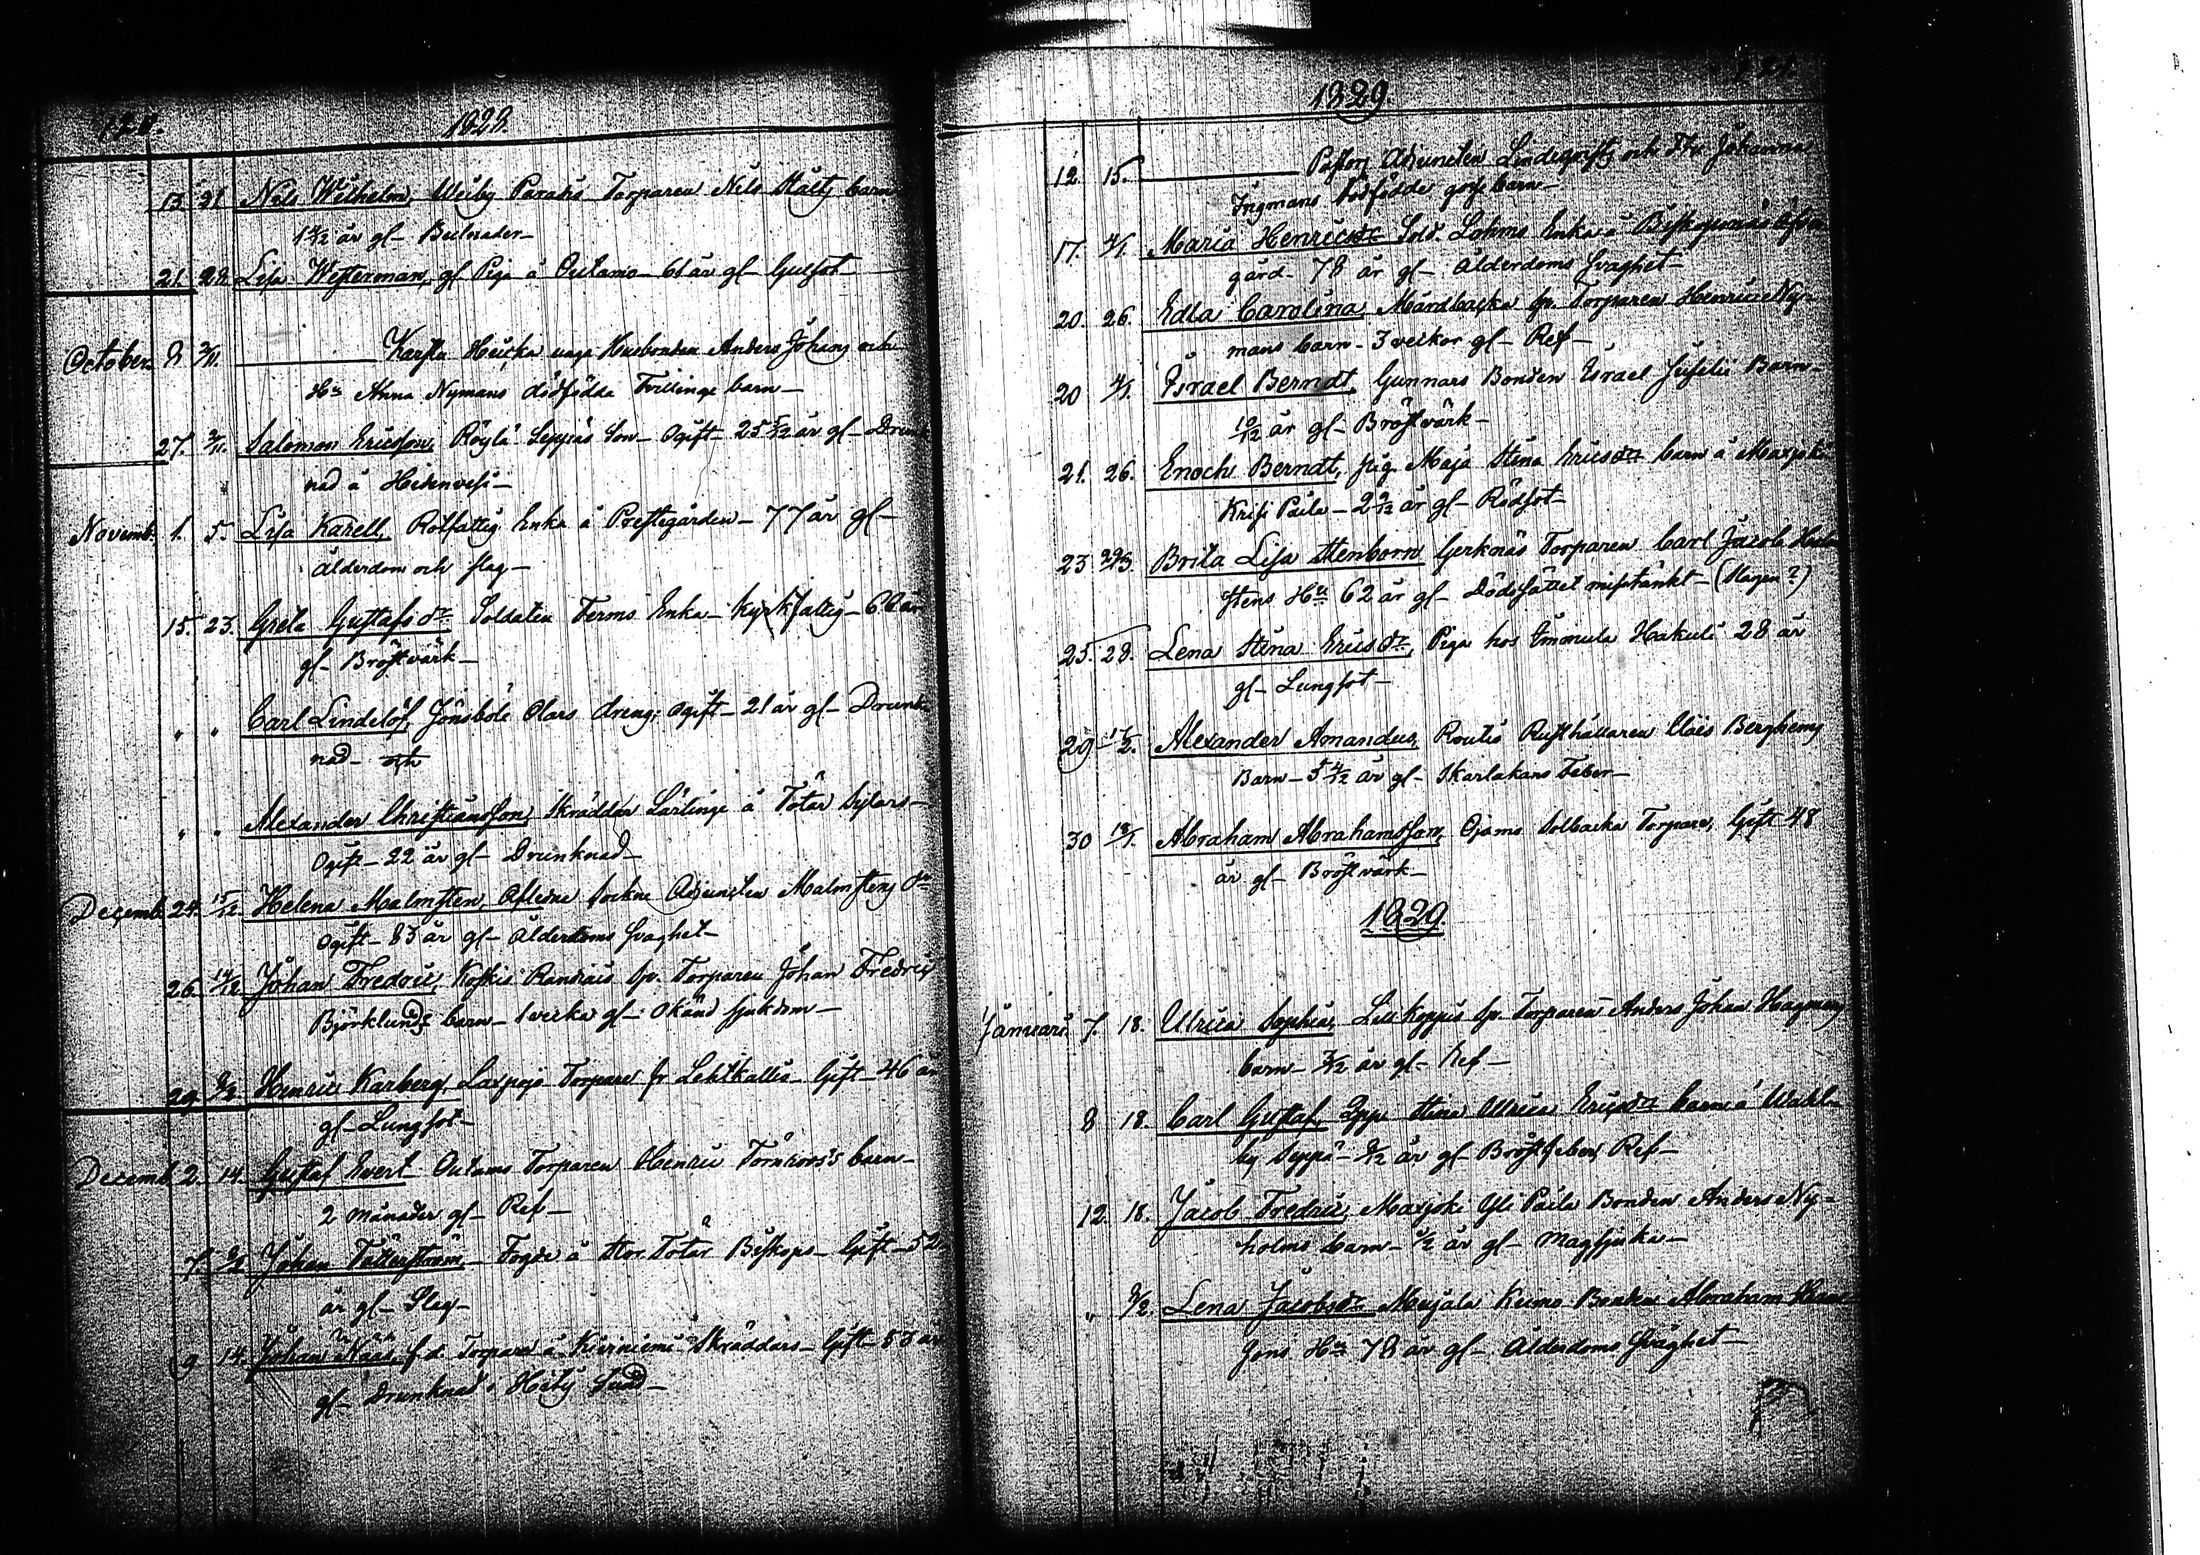 120. 1828.
13 21 Nils Wilhelm, Weiby Paradis Torparen Nils Ståltz barn
1 4/12 år gl- Bulnader-
21. 28. Lisa Westerman, gl Piga å Outamo- 61 år gl- Gulsot-
October. 8 2/11. Karsta Heikka unga Husbonden Anders Johans och
Hu Anna Nymans dödfödda Tvillinge barn-
27. 2/11. Salomon Ericsson, Röylä Seppäs Son- Ogift- 25 5/12 år gl- Drunk
nad å Hidenvesi-
Novemb. 1. 5. Lisa Karell, Rotfattig Enka å Prestegården- 77 år gl-
Ålderdom och slag-
15. 23. Greta Gustafsdr. Soldaten Ferms Enka- kyrkfattig- 66 år
gl- Bröstvärk-
" " Carl Lindelöf, Jönsböle Olars dreng; Ogift- 21 år gl- Drunk
nad- och
" " Alexander Christiansson, Skräddar Lärlinge å Tötar Sylars-
Ogift- 22 år gl- Drunknad-
Decemb 24. 15/12 Helena Malmsten, Afledne Sockne Adjuncten Malmstens dr
Ogift- 83 år gl- Ålderdoms svaghet-
26. 14/12 Johan Fredric, Koskis sp. Torparen Johan Fredric
Björklunds barn- 1 vecka gl- Okänd sjukdom-
29. Henric Karberg, Laxpojo Torpare fr Lehtkallia- Gift- 46 år
gl- Lungsot-
Decemb 2. 14. Gustaf Evert- Outamo Torparen Henric Törnroos's barn-
2 månader gl- Ref-
7. Johan Tätterström- Fogde å Stor Tötar Biskops- Gift- 52
år gl- Slag-
9 14. Johan Nääs, f.d. Torpare å Kirniemi Skräddars- Gift- 53 år
gl- Drunknad i Sund-
1829. 121.
12. 15. Pastors Adjuncten Lindeqvists och Fru Johanna
Ingmans dödfödde gosse barn-
17. 4/1. Maria Henricsdr Sold. Lohms Enka å Biskopsnäs Öfver
gård- 78 år gl- Ålderdoms svaghet-
20. 26. Edla Carolina, Mårdbacka sp. Torparen Henric Ny-
mans barn- 3 veckor gl- Ref-
20 4/1. Israel Berndt, Gunnars Bonden Israel Juselii Barn-
10/12 år gl- Bröstvärk-
21. 26. Enoch Berndt, pig. Maja Stina Ericsdr barn å Maxjoki
Krisi Paila- 2 9/12 år gl- Rödsot-
23 Brita Lisa Stenborn Gerknäs Torparen Carl Jacob
stens Hu 62 år gl- Dödssättet misstänkt- (Slagen?)
25. 28. Lena Stina Ericsdr, Piga hos Immula Hakuli 28 år
gl- Lungsot-
29 1/2. Alexander Amandus, Routio Rusthållaren Claës Berghems
Barn- 5 4/12 år gl- Skarlakans Feber-
30 18/1. Abraham Abrahamsson, Ojamo Solbacka Torpare, Gift 48
år gl- Bröstvärk-
1829.
Januari. 7. 18. Ulrica Sophia, Lill Koppis sp. Torparen Anders Johan Hagmans
barn- 3/12 år gl- Ref-
8 18. Carl Gustaf, Lpp. Stina Ulrica Ericsdr barn å Wahla
by Seppä- 9/12 år gl- Bröstfeber Ref-
12. 18. Jacob Fredric, Maxjoki Yli Paila Bonden Anders Ny-
holms barn- 1/2 år gl- Magsjuka-
" 3/2. Lena Jacobsdr. Maxjala Kumo Bonden Abraham
Jons Hu 78 år gl- Ålderdoms svaghet-